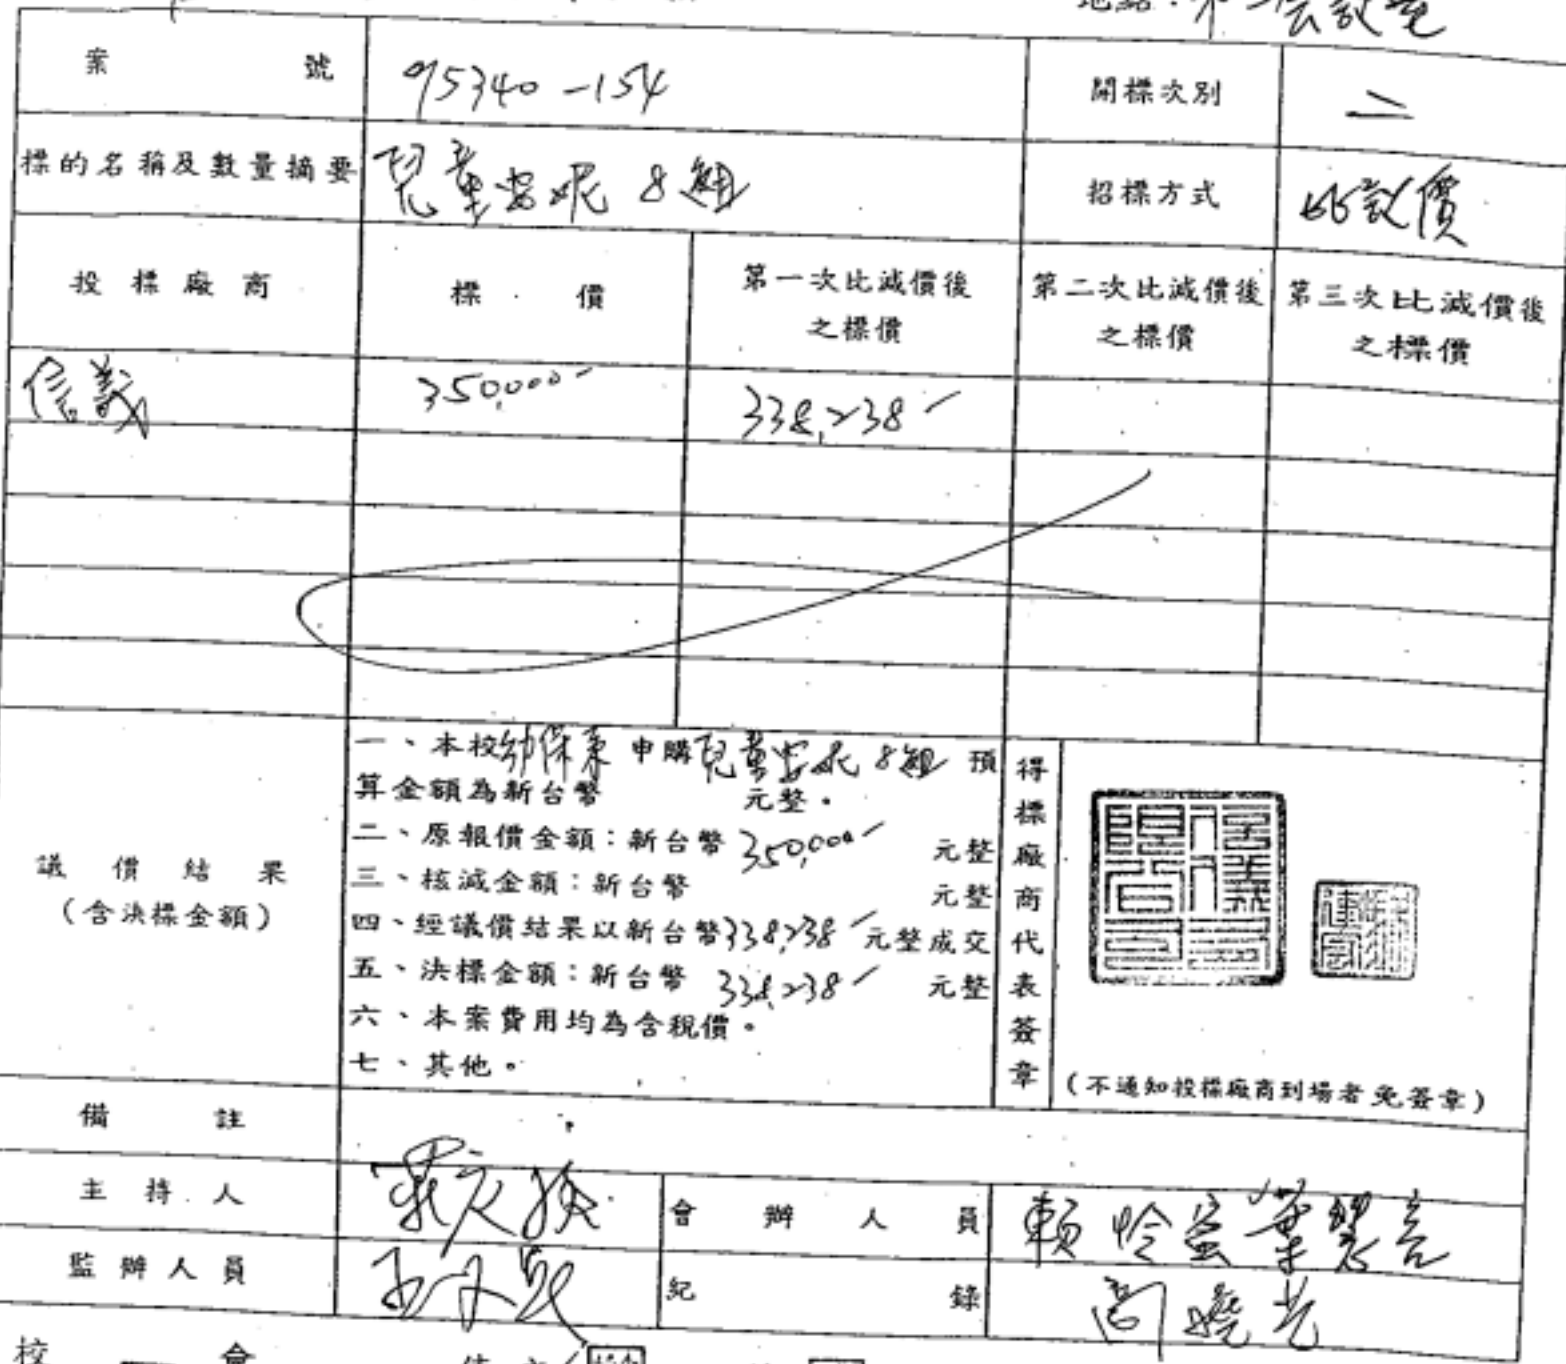 地點：第一會議室
案號 95340-154 開標次別 二
標的名稱及數量摘要 兒童安妮 8組 招標方式 比議價
投標廠商 標價 第一次比減價後之標價 第二次比減價後之標價 第三次比減價後之標價
信義 350,000 338,238
一、本校幼保系申購兒童安妮8組 預
算金額為新台幣 元整。
二、原報價金額：新台幣 350,000 元整
三、核減金額：新台幣 元整
議價結果
（含決標金額）
四、經議價結果以新台幣338,238元整成交
五、決標金額：新台幣 338,238 元整
六、本案費用均為含稅價。
七、其他。
得標廠商代表簽章
（不通知投標廠商到場者免簽章）
備註
主持人 會辦人員 賴
監辦人員 紀錄 高曉光
校 會